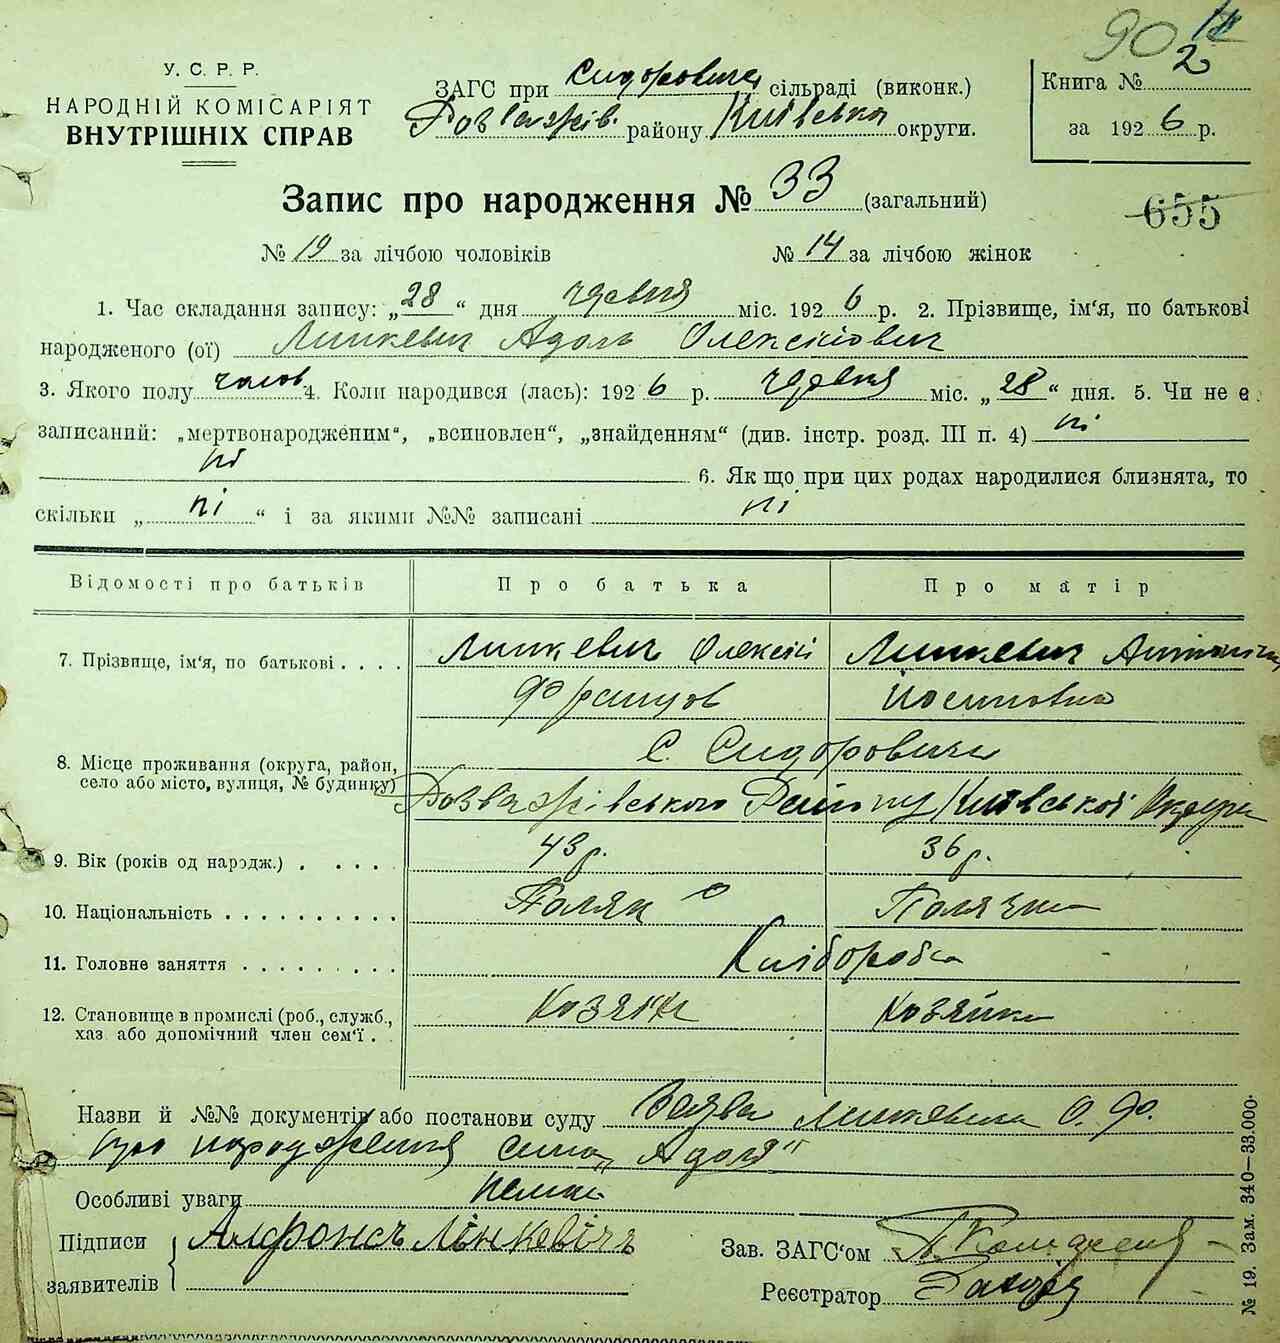 90 2
У. С. Р. Р.
НАРОДНІЙ КОМІСАРІЯТ
ВНУТРІШНІХ СПРАВ
ЗАГС при Сидоровичі сільраді (виконк.)
Розважів. району Київська округи.
Книга №
за 1926 р.
Запис про народження № 33 (загальний)
655
№ 19 за лічбою чоловіків № 14 за лічбою жінок
1. Час складання запису: „28“ дня червня міс. 1926 р. 2. Прізвище, ім‘я, по батькові
народженого (ої) Линкевич Адоль Олексійович
3. Якого полу чолов 4. Коли народився (лась): 1926 р. червня міс. „28“ дня. 5. Чи не є
записаний: „мертвонародженим“, „всиновлен“, „знайденням“ (див. інстр. розд. III п. 4) ні
ні 6. Як що при цих родах народилися близнята, то
скільки „ні“ і за якими №№ записані ні
Відомості про батьків Про батька Про матір
7. Прізвище, ім‘я, по батькові . . . . Линкевич Олексій Линкевич
Францов Йосиповна
8. Місце проживання (округа, район, С. Сидоровичі
село або місто, вулиця, № будинку) Розважівського Району Київської Округи
9. Вік (років од народж.) . . . . 43 р. 36 р.
10. Національність . . . . . . . . . . Поляк Полячка
11. Головне заняття . . . . . . . . . Хліборобс
12. Становище в промислі (роб., служб., хозяїн хозяйка
хаз. або допомічний член сем‘ї . .
Назви й №№ документів або постанови суду Заява Линкевича О. Ф.
про народження сина „Адоля“
Особливі уваги нема
Підписи Алфонсъ Лінкевічъ
заявителів
Зав. ЗАГС‘ом
Реєстратор
№ 19. Зам. 340—33.000.